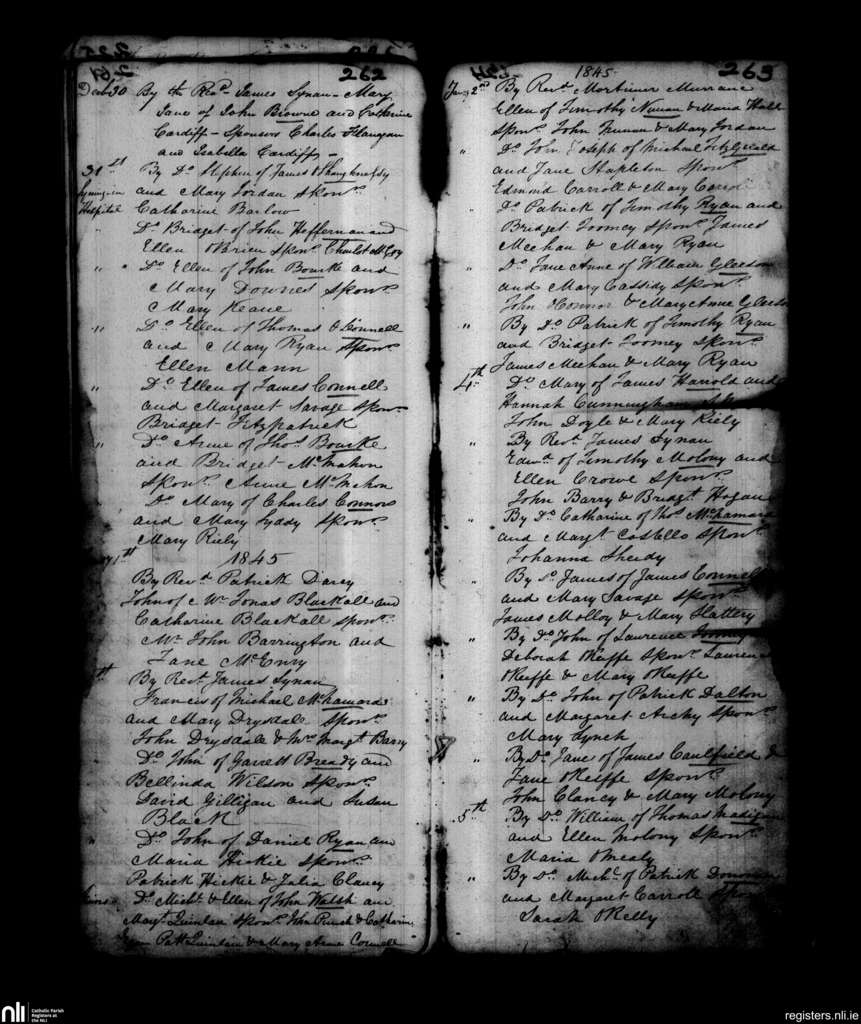 262
Decr 30 By the Revd. James Synan - Mary
Jane of John Browne and Catherine
Cardiff - Sponsors Charles Flanagan
and Isabella Cardiff -
31st By Do Stephen of James
Lyingin and Mary Jordan Sponrs
Hospital Catharine Barlow
" Do Bridget of John Heffernan and
Ellen OBrien Sponr.
" Do Ellen of John Bourke and
Mary Downes Sponr
Mary Keane
" Do Ellen of Thomas OConnell
and Mary Ryan Sponr
Ellen Mann
" Do Ellen of James Connell
and Margaret Savage Sponr
Bridget Fitzpatrick
" Do Anne of Thos Bourke
and Bridget McMahon
Sponr. Anne McMahon
Do Mary of Charles Connors
and Mary Lyddy Sponr
Mary Riely
1845
By Revd Patrick Darcy
John of Jonas Blackall and
Catharine Blackall Sponr
Mr John Barrington and
Jane McEnry
By Revd James Synan
Francis of Michael McNamara
and Mary Drysdale Sponr
John Drysdale & Mrs Margt Barry
Do John of Garrett Bready and
Bellinda Wilson Sponrs
David Gilligan and Susan
Black
" Do John of Daniel Ryan and
Maria Hickie Sponrs
Patrick Hickie & Julia Clancy
Do Michl & Ellen of John Walsh and
Margt Quinlan Sponrs John & Catharine
Patt Quinlan & Mary Anne Connell
1845 263
Jany 2nd By Revd. Mortimer Murrane
Ellen of Timothy Nunan & Maria Hall
Sponrs John Nunan & Mary Jordan
" Do John Joseph of Michael Fitzgerald
and Jane Stapleton Sponrs
Edmond Carroll & Mary
Do Patrick of Timothy Ryan and
Bridget Toomey Sponrs James
Meehan & Mary Ryan
" Do Jane Anne of William Gleeson
and Mary Cassidy Sponrs
John OConnor & Mary Anne Gleeson
" By Do Patrick of Timothy Ryan
and Bridget Toomey Sponrs
James Meehan & Mary Ryan
4th Do Mary of James Harrold and
Hannah Cunningham
John Doyle & Mary Kiely
By Revd James Synan
Edwd of Timothy Molony and
Ellen Crowe Sponrs
John Barry & Bridgt Hogan
By Do Catharine of Thos McNamara
and Margt Costello Sponr
Johanna Sheedy
" By Do James of James Connell
and Mary Savage Sponrs
James Molloy & Mary Slattery
" By Do John of Laurence
Deborah OKeiffe Sponrs Laurence
OKeiffe & Mary OKeiffe
" By Do John of Patrick Dalton
and Margaret Archy Sponr
Mary Lynch
" By Do Jane of James Caulfield &
Jane OKeiffe Sponrs
John Clancy & Mary Molony
5th By Do William of Thomas Madigan
and Ellen Molony Sponr
Maria OMealy
" By Do Michl of Patrick Donovan
and Margaret Carroll
Sarah OKelly
nli Catholic Parish
Registers at
the NLI
registers.nli.ie